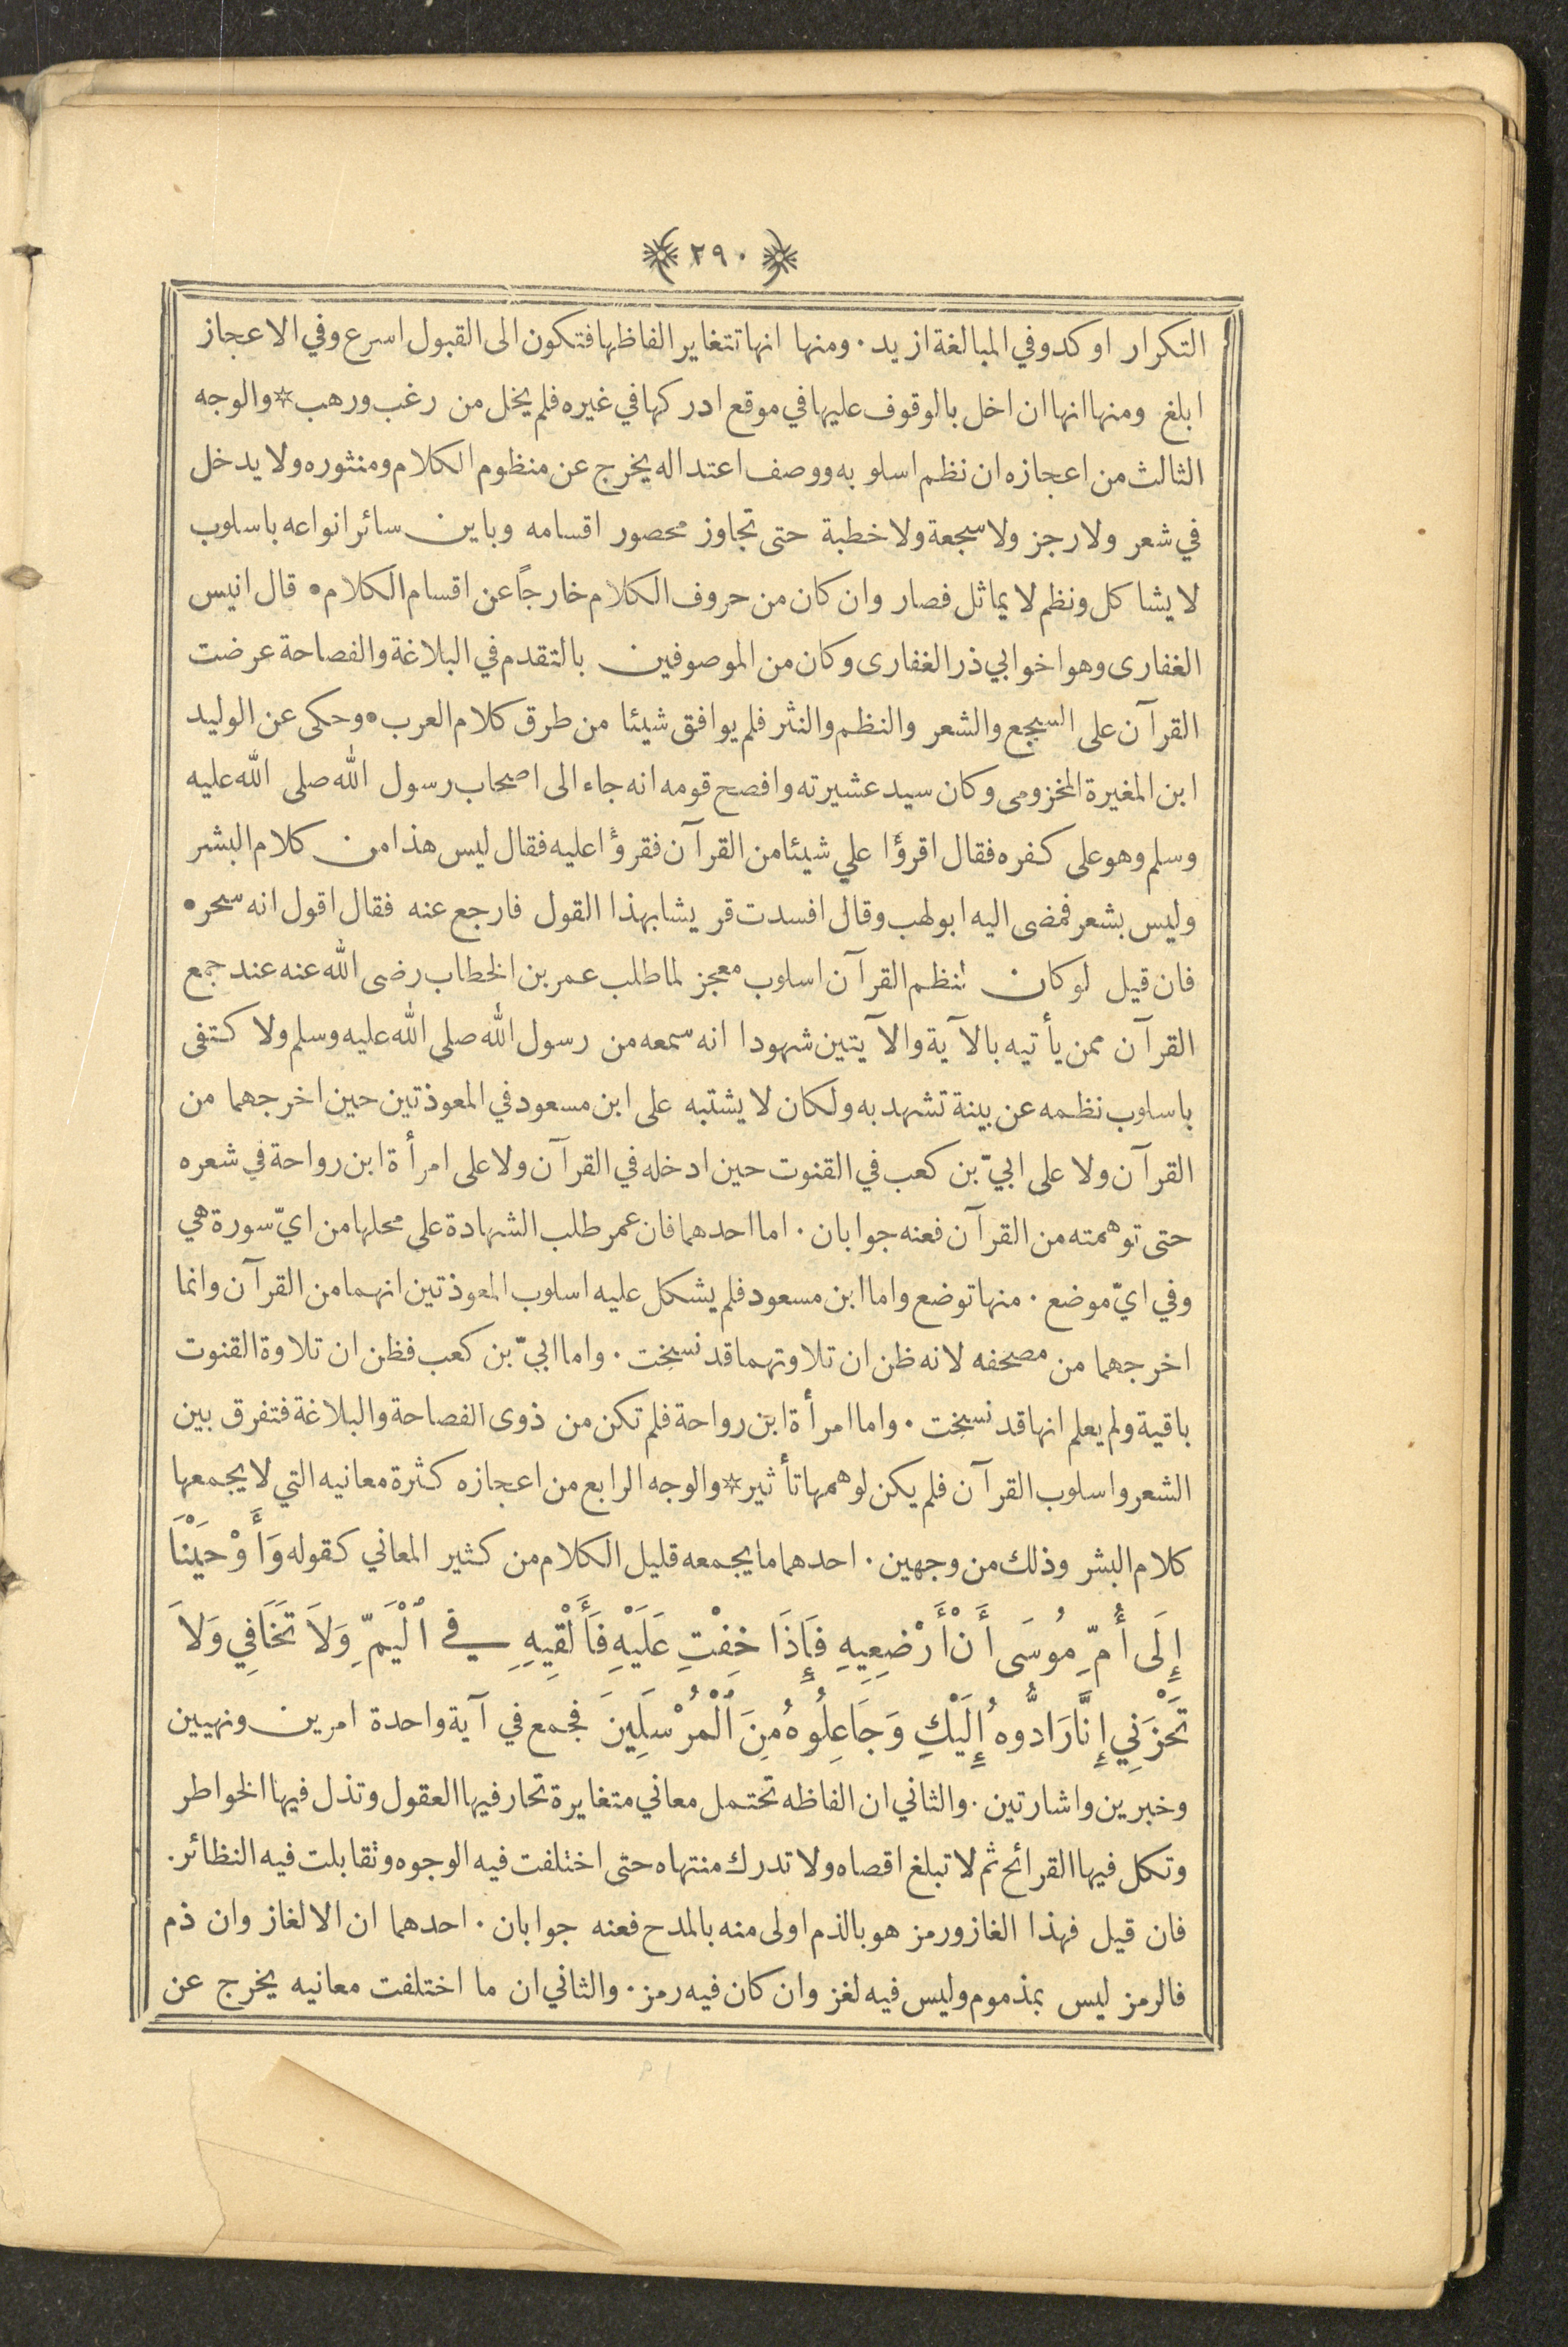 ﴿ ٢٩٠ ﴾
التكرار اوكد وفي المبالغة ازيد . ومنها انها تتغاير الفاظها فتكون الى القبول اسرع وفي الاعجاز
ابلغ ومنها انها ان اخل بالوقوف عليها في موقع ادركها في غيره فلم يخل من رغب ورهب * والوجه
الثالث من اعجازه ان نظم اسلوبه ووصف اعتداله يخرج عن منظوم الكلام ومنثوره ولا يدخل
في شعر ولا رجز ولا سجعة ولا خطبة حتى تجاوز محصور اقسامه وباين سائر انواعه باسلوب
لا يشاكل ونظم لا يماثل فصار وان كان من حروف الكلام خارجاً عن اقسام الكلام • قال انيس
الغفارى وهو اخو ابي ذر الغفارى وكان من الموصوفين بالتقدم في البلاغة والفصاحة عرضت
القرآن على السجع والشعر والنظم والنثر فلم يوافق شيئا من طرق كلام العرب • وحكى عن الوليد
ابن المغيرة المخزومى وكان سيد عشيرته وافصح قومه انه جاء الى اصحاب رسول الله صلى الله عليه
وسلم وهو على كفره فقال اقرؤا علي شيئا من القرآن فقرؤا عليه فقال ليس هذا من كلام البشر
وليس بشعر فمضى اليه ابو لهب وقال افسدت قريشا بهذا القول فارجع عنه فقال اقول انه سحر •
فان قيل لو كان لنظم القرآن اسلوب معجز لما طلب عمر بن الخطاب رضى الله عنه عند جمع
القرآن ممن يأتيه بالآية والآيتين شهودا انه سمعه من رسول الله صلى الله عليه وسلم ولا كتفى
باسلوب نظمه عن بينة تشهد به ولكان لا يشتبه على ابن مسعود في المعوذتين حين اخرجهما من
القرآن ولا على ابيّ بن كعب في القنوت حين ادخله في القرآن ولا على امرأة ابن رواحة في شعره
حتى توهمته من القرآن فعنه جوابان . اما احدهما فان عمر طلب الشهادة على محلها من ايّ سورة هي
وفي ايّ موضع . منها توضع واما ابن مسعود فلم يشكل عليه اسلوب المعوذتين انهما من القرآن وانما
اخرجهما من مصحفه لانه ظن ان تلاوتهما قد نسخت . واما ابيّ بن كعب فظن ان تلاوة القنوت
باقية ولم يعلم انها قد نسخت . واما امرأة ابن رواحة فلم تكن من ذوى الفصاحة والبلاغة فتفرق بين
الشعر واسلوب القرآن فلم يكن لوهمها تأثير * والوجه الرابع من اعجازه كثرة معانيه التي لا يجمعها
كلام البشر وذلك من وجهين . احدهما ما يجمعه قليل الكلام من كثير المعاني كقوله وَأَوْحَيْنَا
إِلَى أُمِّ مُوسَى أَنْ أَرْضِعِيهِ فَإِذَا خِفْتِ عَلَيْهِ فَأَلْقِيهِ فِي ٱلْيَمِّ وَلاَ تَخَافِي وَلاَ
تَحْزَنِي إِنَّا رَادُّوهُ إِلَيْكِ وَجَاعِلُوهُ مِنَ ٱلْمُرْسَلِينَ فجمع في آية واحدة امرين ونهيين
وخبرين واشارتين . والثاني ان الفاظه تحتمل معاني متغايرة تحار فيها العقول وتذل فيها الخواطر
وتكل فيها القرائح ثم لا تبلغ اقصاه ولا تدرك منتهاه حتى اختلفت فيه الوجوه وتقابلت فيه النظائر .
فان قيل فهذا الغاز ورمز هو بالذم اولى منه بالمدح فعنه جوابان . احدهما ان الالغاز وان ذم
فالرمز ليس بمذموم وليس فيه لغز وان كان فيه رمز . والثاني ان ما اختلفت معانيه يخرج عن